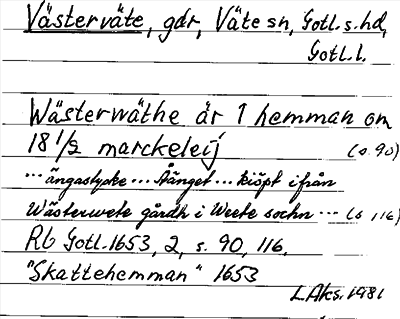 Västerväte, gdr, Väte sn, Gotl. s. hd,
Gotl. l.
Wästerwäthe är 1 hemman om
18 1/2 marckeleij (s. 90)
... ängastycke ... Åänget ... kiöpt ifrån
Wästerwete gårdh i Weete sochn ... (s. 116)
Rb Gotl. 1653, 2, s. 90, 116,
"Skattehemman" 1653
L Aks. 1981